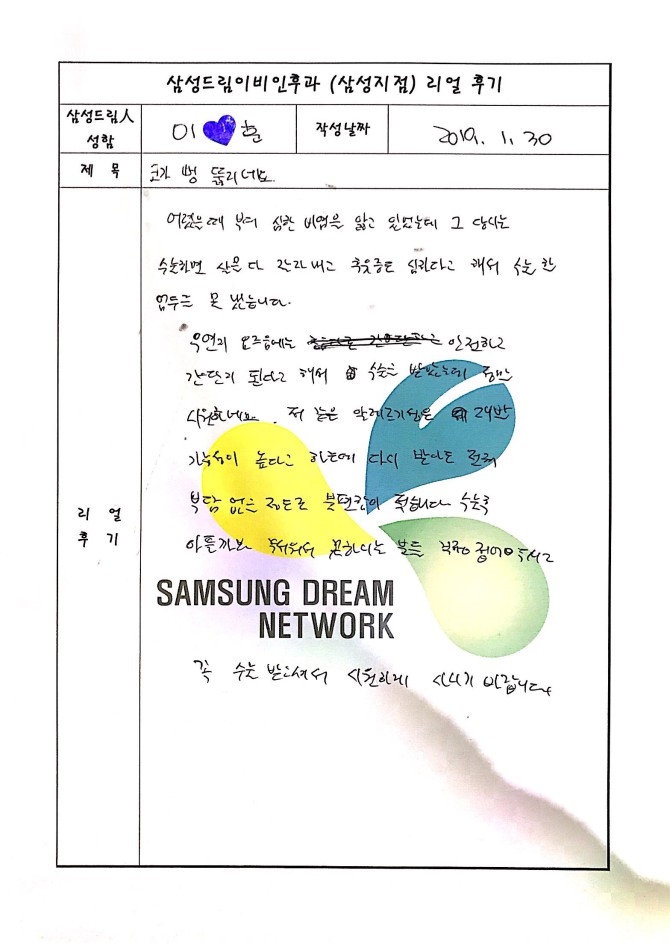 삼성드림이비인후과 (삼성지점) 리얼 후기
삼성드림人
성함
이 훈
작성날짜
2019. 1. 30
제 목
코가 뻥 뚫리네요.
어렸을때 부터 심한 비염을 앓고 있었는데 그 당시는
수술하면 살을 다 잘라내고 후유증도 심하다고 해서 수술 할
엄두를 못 냈습니다.
우연히 요즘에는 안전하고
간단히 된다고 해서 수술을 받았는데 정말
시원하네요. 저 같은 알레르기성은 재발
가능성이 높다고 하는데 다시 받아도 전혀
부담 없을 정도로 불편함이 적습니다 수술후
아플까봐 무서워서 못하시는 분들 걱정 접어두시고
리 얼
후 기
SAMSUNG DREAM
NETWORK
꼭 수술 받으셔서 시원하게 사시기 바랍니다